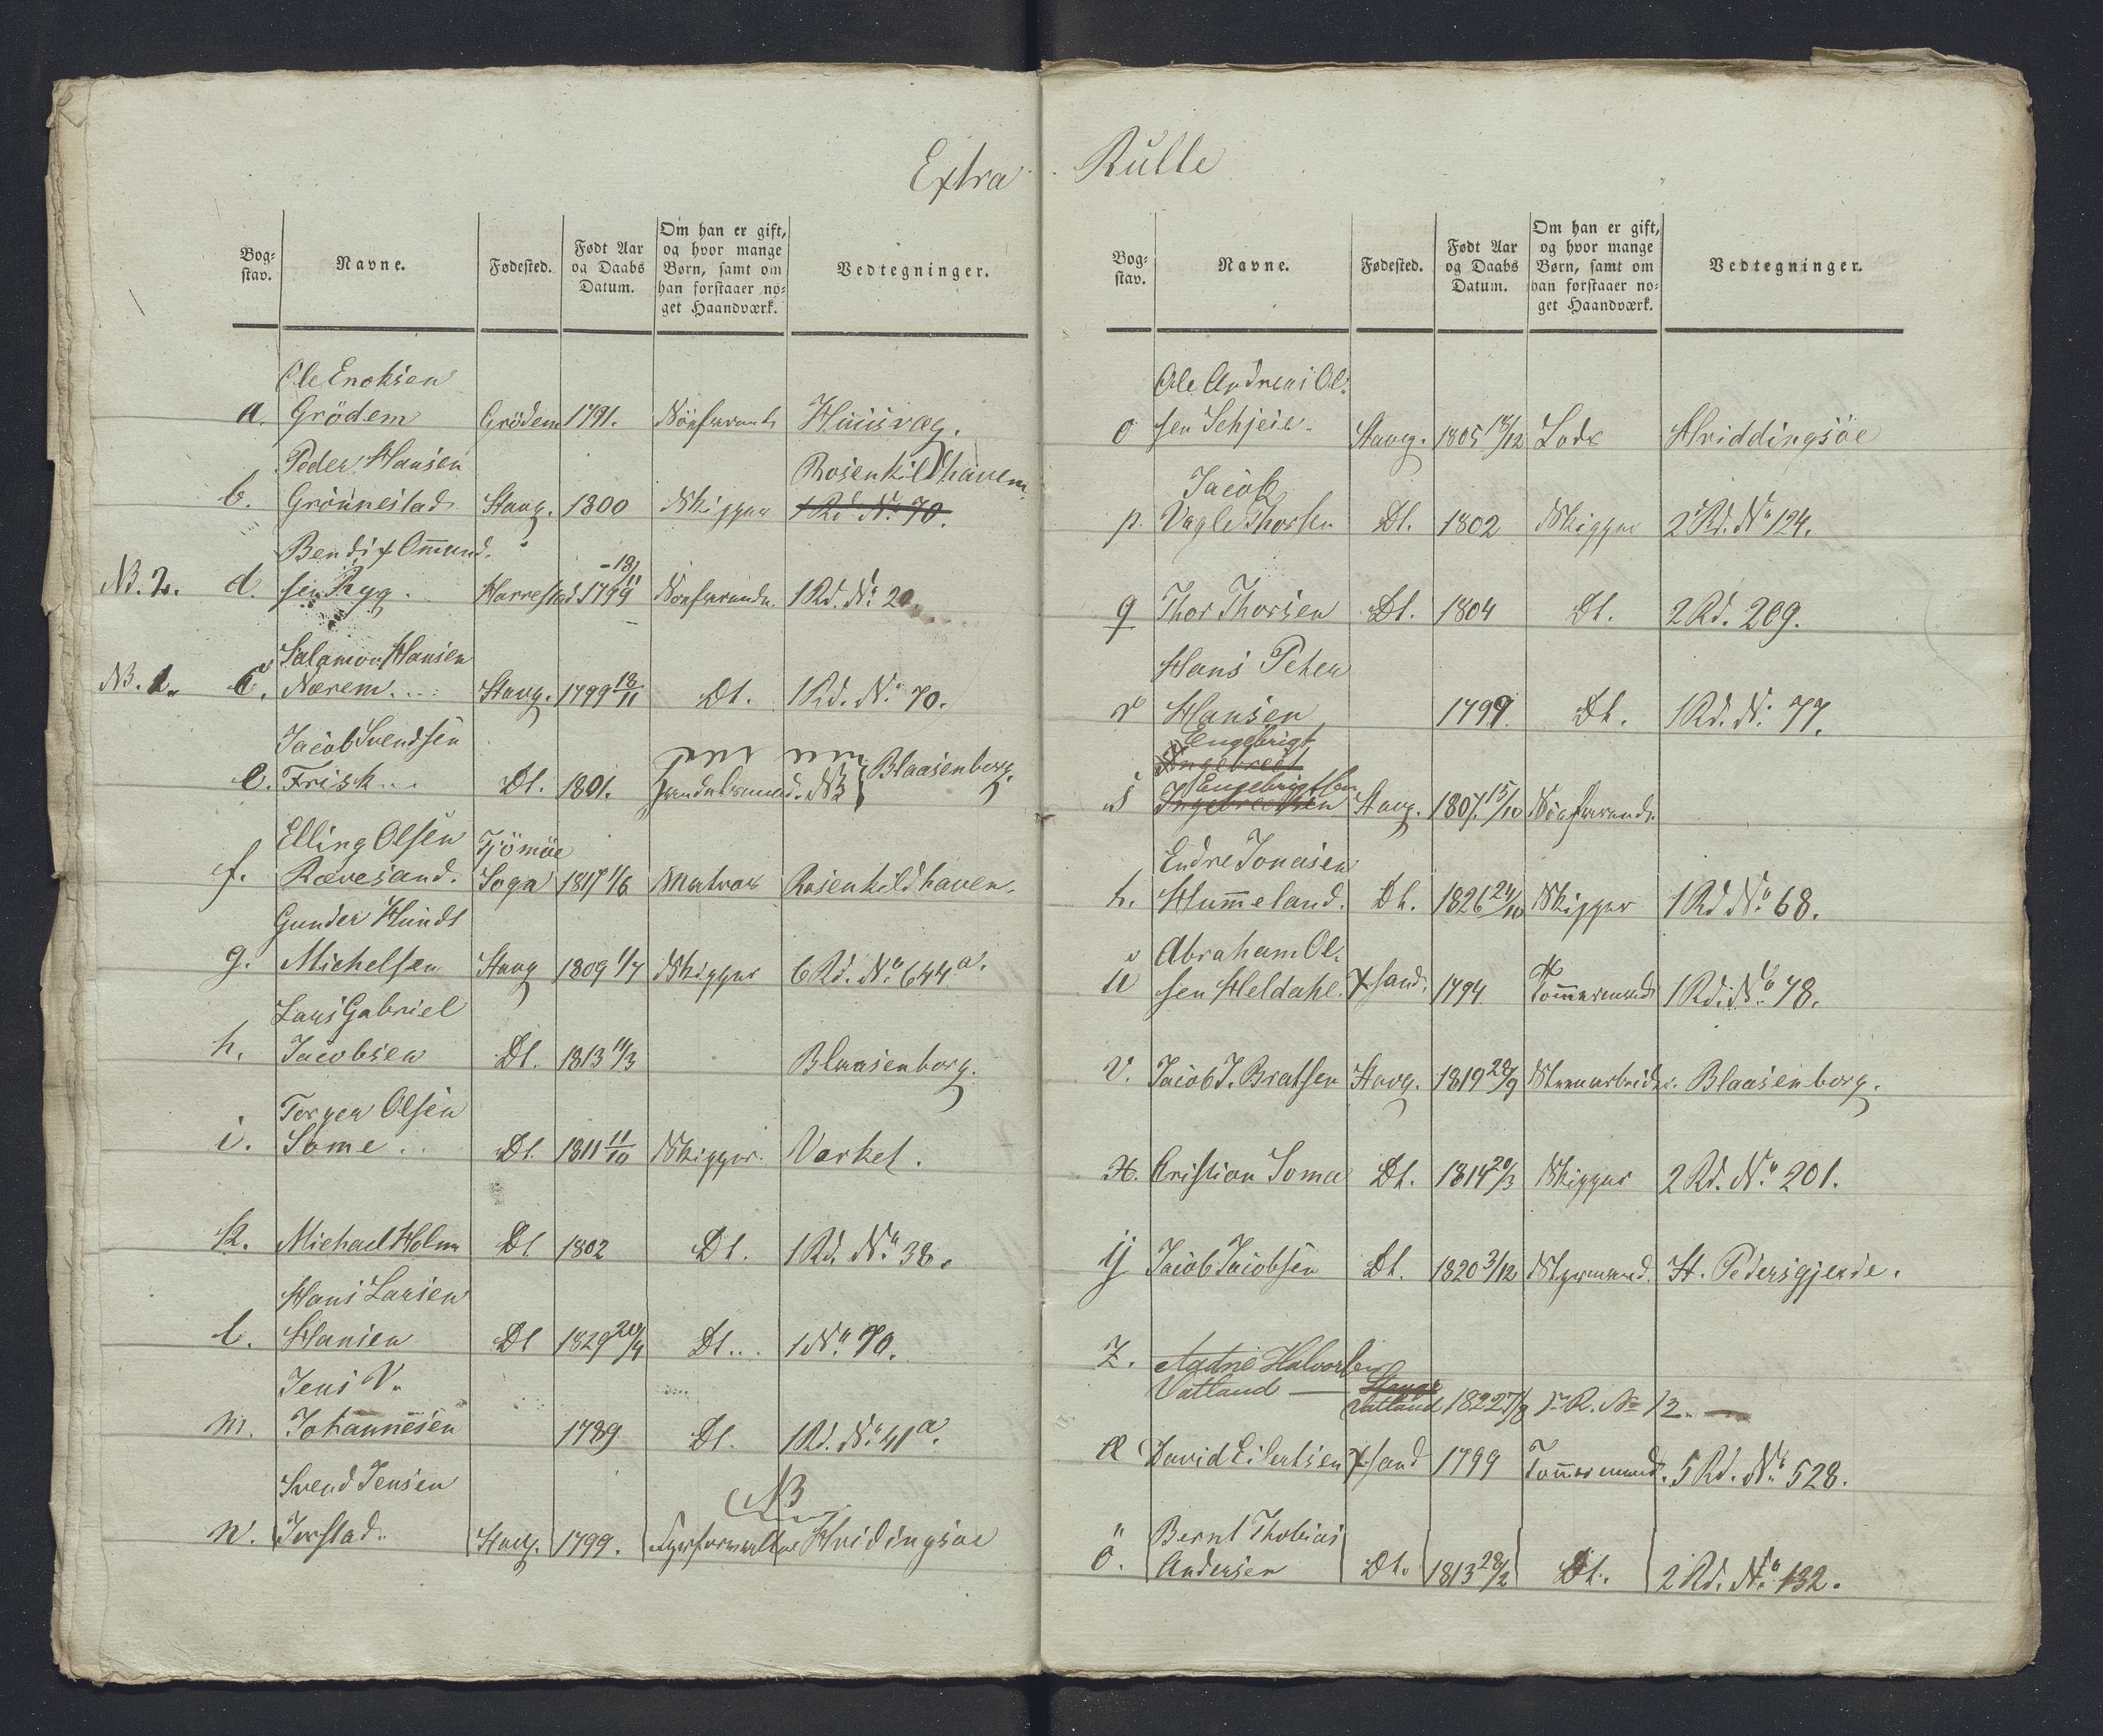 Extra Rulle
Bog-
stav.
Navne.
Fødested.
Født Aar
og Daabs
Datum.
Om han er gift,
og hvor mange
Børn, samt om
han forstaaer no-
get Haandværk.
Vedtegninger.
Ole Enoksen
a. Grödem Grödem 1791. Huusvag.
Peder Hansen Rosenkildhaven
b. Grönnestad Stavg. 1800 Skipper 1 Rd No 70.
Bendix Ommund- 18/11
NB. 2. d. sen Ryg. Harrestad 1799 1 Rd. No 20
Salamon Hansen
NB. 1. c. Nærem.... Stavg. 1799 18/11 Dt. 1 Rd. No 70.
Jacob Svendsen
e. Frisk... Dt. 1801. Handelsmand. NB Blaasenborg.
Elling Olsen Tjömöe
f. Rævesand. Sogn 1817 1/6 Matros Rosenkildhaven.
Gunder Hundt
g. Michelsen Stavg 1809 1/7 Skipper 6 Rd. No 644 a.
Lars Gabriel
h. Jacobsen Dt. 1813 14/3 Blaasenborg.
Torger Olsen
i. Some .. Dt. 1811 11/10 Skipper. Varket.
k. Michael Holm Dt 1802 Dt. 1 Rd. No 38.
Hans Larsen
l. Hansen Dt 1829 20/4 Dt... 1 No 70.
Jens V.
m. Johannesen 1789 Dt. 1 Rd. No 41 a.
Svend Jensen NB
n. Jerstad.. Stavg. 1799. Fyrforvalter Hvidingsøe
Bog-
stav.
Navne.
Fødested.
Født Aar
og Daabs
Datum.
Om han er gift,
og hvor mange
Børn, samt om
han forstaaer no-
get Haandværk.
Vedtegninger.
Ole Andreas Ol-
o sen Schjeie. Stavg. 1805 18/12 Lods Hviddingsöe
Jacob
p. Vagle Thorsen Dt. 1802 Skipper 2 Rd. No 124.
q Thor Thorsen Dt. 1804 Dt. 2 Rd. 209.
Hans Peter
r Hansen 1799. Dt. 1 Rd. No 77.
Engebrigt
Ingebrect
Engebrigtsen
s Ingebrectsen Stavg. 1807. 15/10
Endre Jonasen
t. Hummeland. Dt. 1826 24/10 Skipper 1 Rd No 68.
Abraham Ol-
u sen Heldahl. Xsand. 1794 Tömmermand 1 Rd. No 78.
v. Jacob J. Bratsen Stavg. 1819 28/9 Blaasenborg.
x. Cristian Soma Dt. 1814 20/3 Skipper 2 Rd. No 201.
ij Jacob Jacobsen Dt. 1820 3/12 Styrmand. St. Pedersgjerde.
Z. Aadne Halvorsen
Vatland — Stavg
Vatland 1822 7/8 1ste R. No 12. —
Æ David Eilertsen Xsand 1799 Tömmermand. 5 Rd. No 528.
Bernt Thobias
ö. Andersen Dt. 1813 28/2 Dt. 2 Rd. No 132.